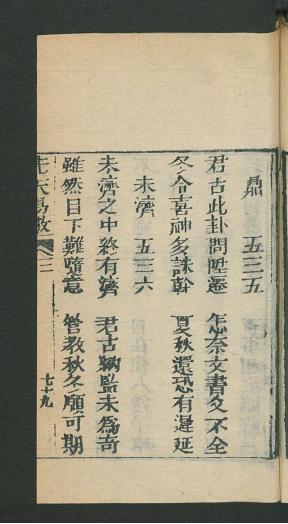 鼎 五三五
君占此卦問陞遷 怎奈文書久不全
冬令喜神多誅幹 夏秋還恐有遲延
未濟 五三六
未濟之中終有濟 君占納監未為奇
雖然目下難隨意 管教秋冬願可期
先天易數 卷三 七十九